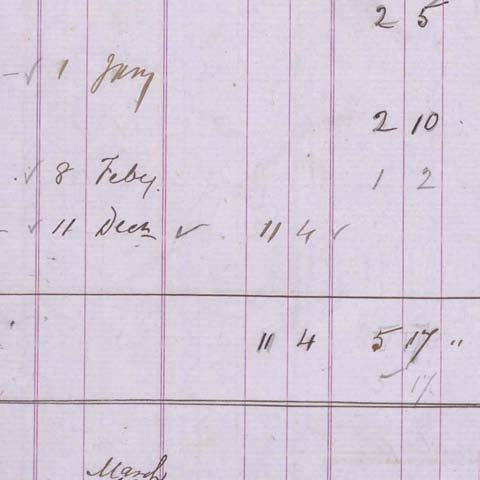 2 5
✓ 1 Jany
2 10
✓ 8 Feby. 1 2
✓ 11 Decr ✓ 11 4 ✓
11 4 5 17 "
✓ 17
March